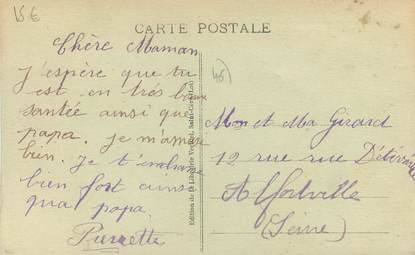 15 €
CARTE POSTALE
Chère Maman
J'espère que tu
est en très bonne
santée ainsi que
papa. Je m'amuse
bien. Je t'embrasse
bien fort ainsi
que papa.
Pierrette
Edition de la Librairie
45
Mon et Ma Girard
12 rue rue
Alfortville
(Seine)